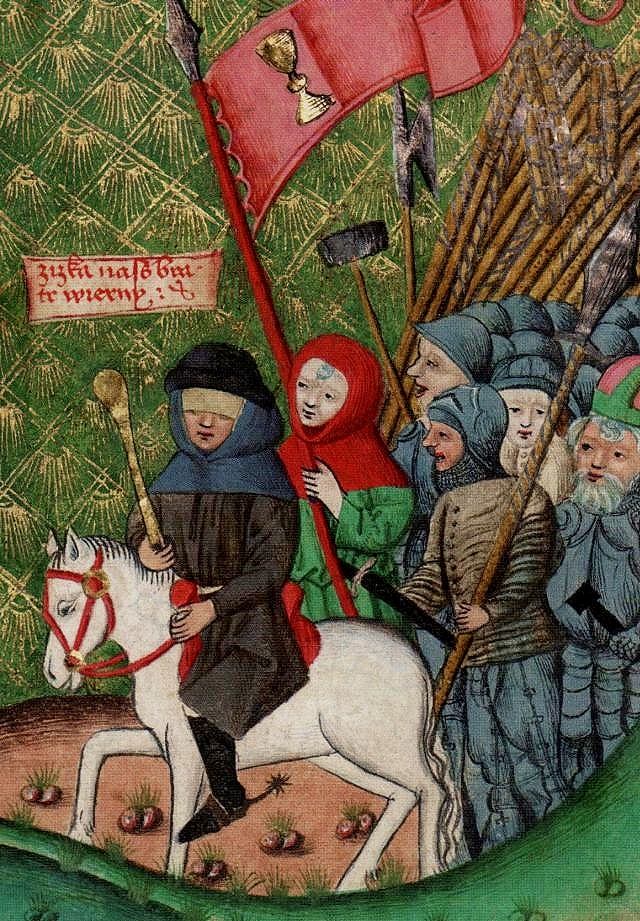 zizka nass bra-
tr wierny : ⁊c